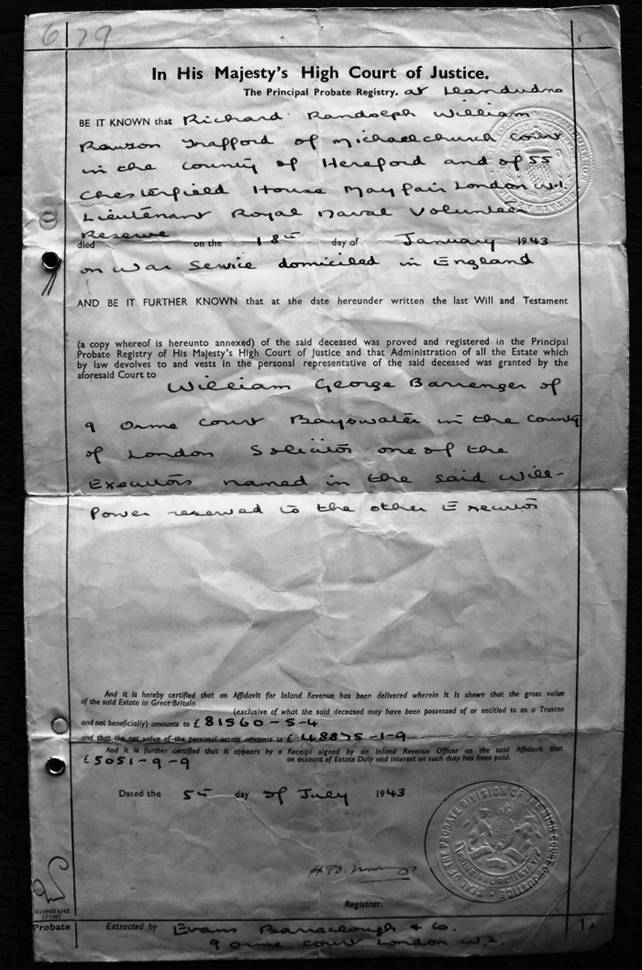 6 79
In His Majesty's High Court of Justice.
The Principal Probate Registry. at Llandudno
BE IT KNOWN that Richard Randolph William
Rawson Trafford of Michaelchurch Court
in the County of Hereford and of 55
Chesterfield House Mayfair London W.1.
Lieutenant Royal Naval Volunteer
Reserve
died on the 18th day of January 1943
on War Service domiciled in England
AND BE IT FURTHER KNOWN that at the date hereunder written the last Will and Testament
(a copy whereof is hereunto annexed) of the said deceased was proved and registered in the Principal
Probate Registry of His Majesty's High Court of Justice and that Administration of all the Estate which
by law devolves to and vests in the personal representative of the said deceased was granted by the
aforesaid Court to William George Barrenger of
9 Orme Court Bayswater in the County
of London Solicitor one of the
Executors named in the said Will-
Power reserved to the other Executor
And it is hereby certified that an Affidavit for Inland Revenue has been delivered wherein it is shewn that the gross value
of the said Estate in Great Britain
(exclusive of what the said deceased may have been possessed of or entitled to as a Trustee
and not beneficially) amounts to £81560-5-4
and that the net value of the personal estate amounts to £48875-1-9
And it is further certified that it appears by a Receipt signed by an Inland Revenue Officer on the said Affidavit that
£5051-9-9 on account of Estate Duty and interest on such duty has been paid.
Dated the 5th day of July 1943
SEAL OF THE PROBATE DIVISION OF THE HIGH COURT OF JUSTICE
Registrar.
Probate
Extracted by Evans Barraclough & Co.
1A
9 Orme Court London W.2.